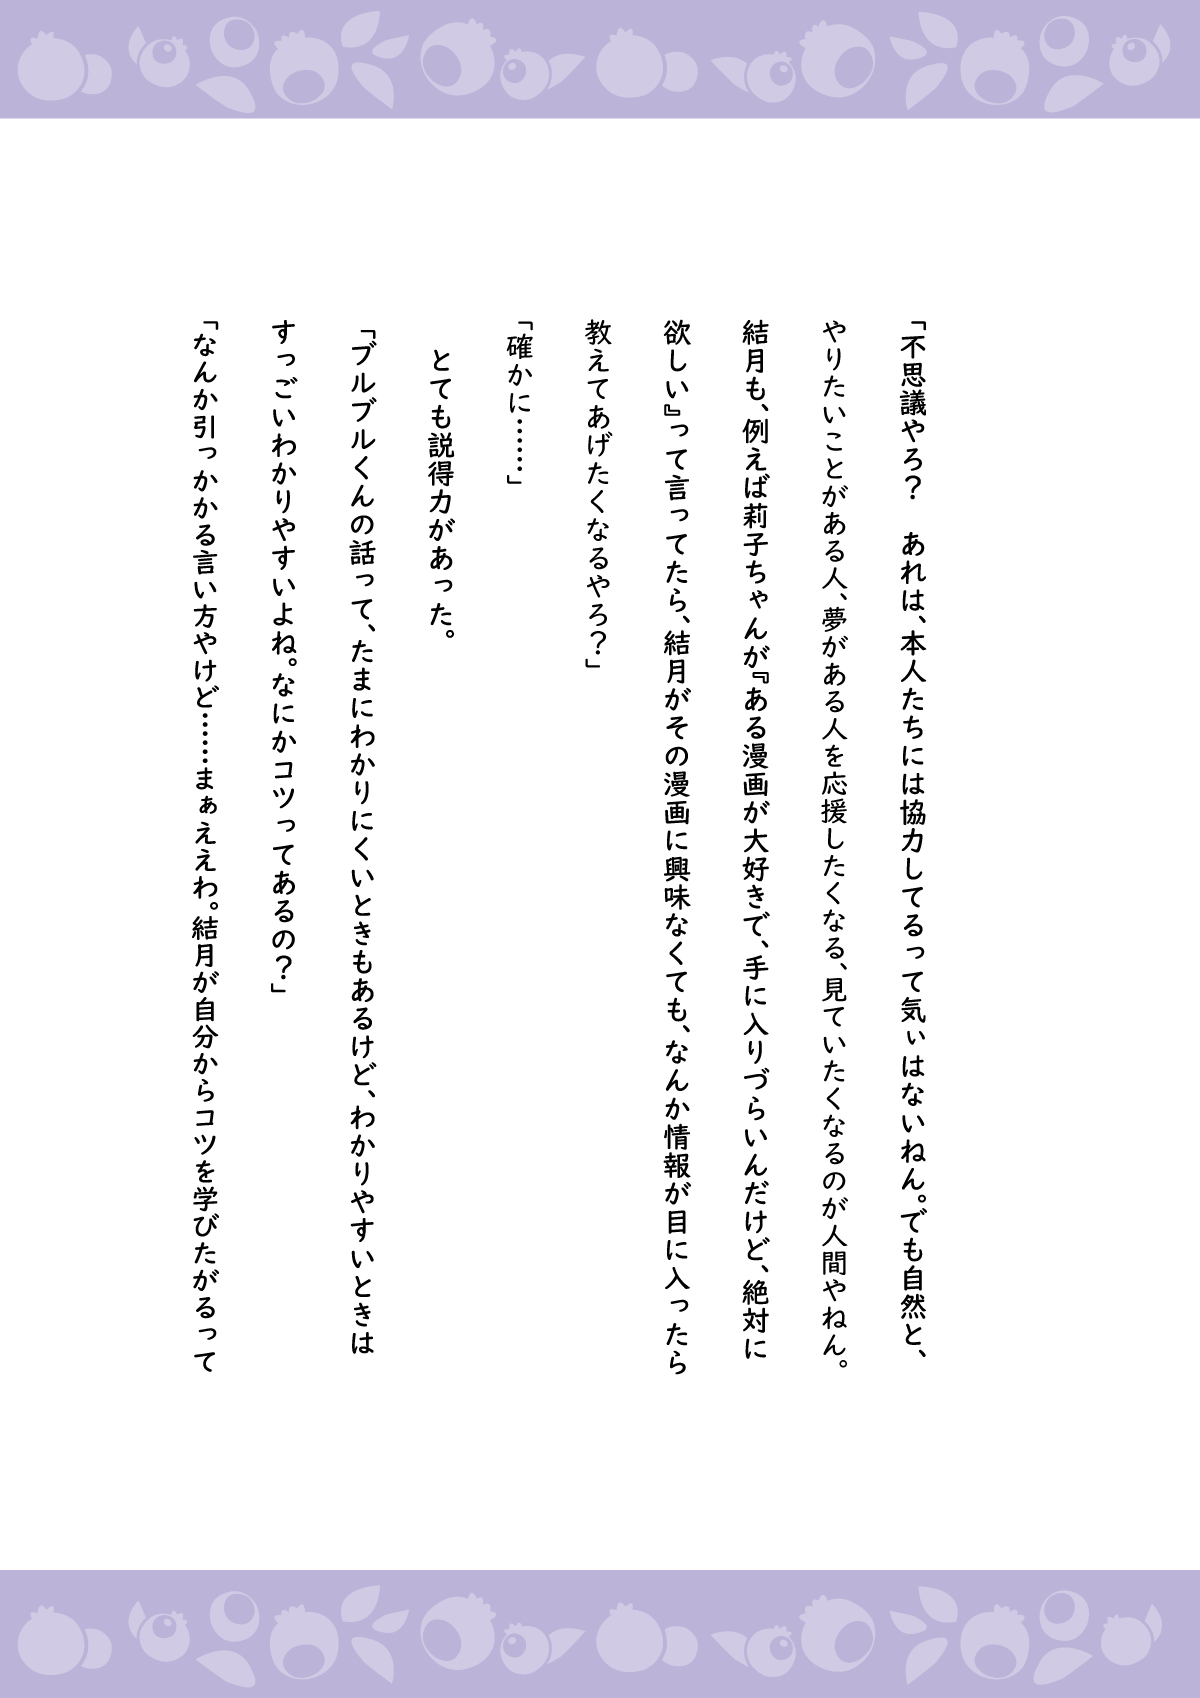 「不思議やろ？　あれは、本人たちには協力してるって気ぃはないねん。でも自然と、
やりたいことがある人、夢がある人を応援したくなる、見ていたくなるのが人間やねん。
結月も、例えば莉子ちゃんが『ある漫画が大好きで、手に入りづらいんだけど、絶対に
欲しい』って言ってたら、結月がその漫画に興味なくても、なんか情報が目に入ったら
教えてあげたくなるやろ？」
「確かに……」
　とても説得力があった。
「ブルブルくんの話って、たまにわかりにくいときもあるけど、わかりやすいときは
すっごいわかりやすいよね。なにかコツってあるの？」
「なんか引っかかる言い方やけど……まぁええわ。結月が自分からコツを学びたがるって